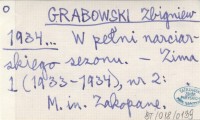 GRABOWSKI Zbigniew
1934... W pełni narciar-
skiego sezonu. – Zima
1 (1933-1934), nr 2:
M. in. Zakopane.